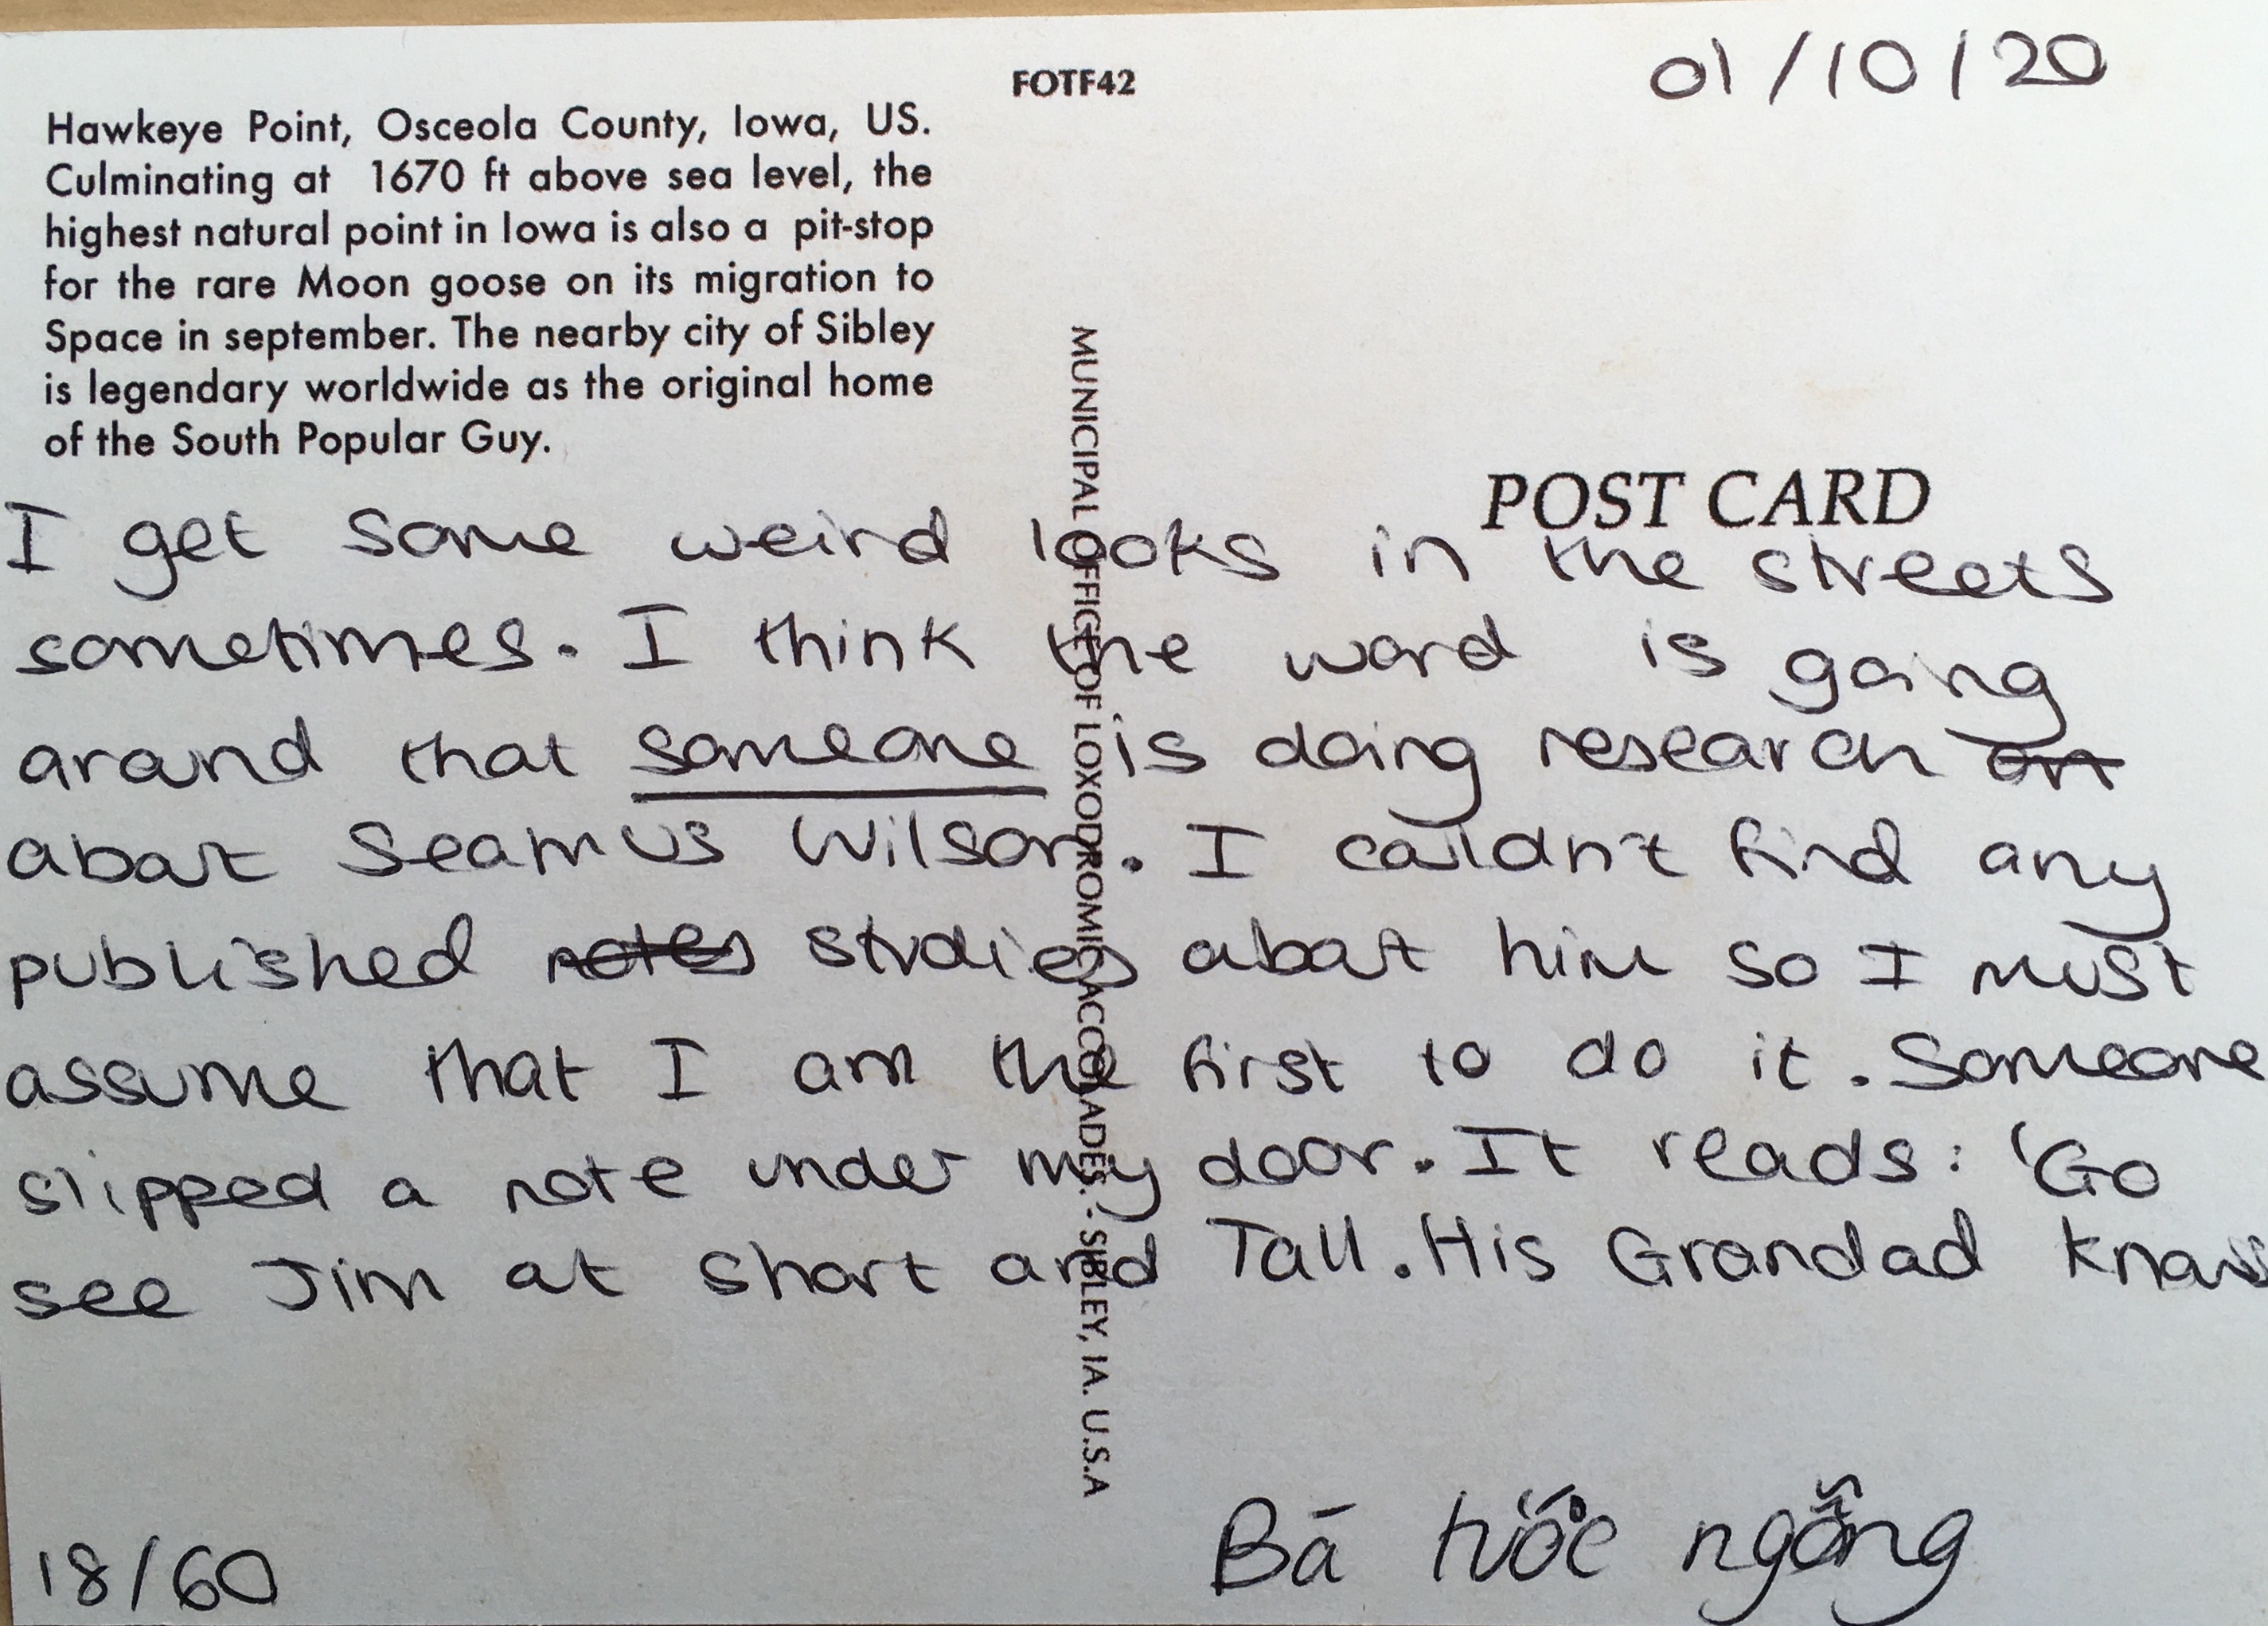 01/10/20
FOTF42
Hawkeye Point, Osceola County, Iowa, US.
Culminating at 1670 ft above sea level, the
highest natural point in Iowa is also a pit-stop
for the rare Moon goose on its migration to
Space in september. The nearby city of Sibley
is legendary worldwide as the original home
of the South Popular Guy.
POST CARD
MUNICIPAL OFFICE OF LOXODROMIC ACCOLADES. - SIBLEY, IA. U.S.A
I get some weird looks in the streets
sometimes. I think the word is going
around that someone is doing research on
about Seamus Wilson. I couldn't find any
published notes studies about him so I must
assume that I am the first to do it. Someone
slipped a note under my door. It reads: 'Go
see Jim at Short and Tall. His Grandad knows
18/60
Bá tước ngỗng